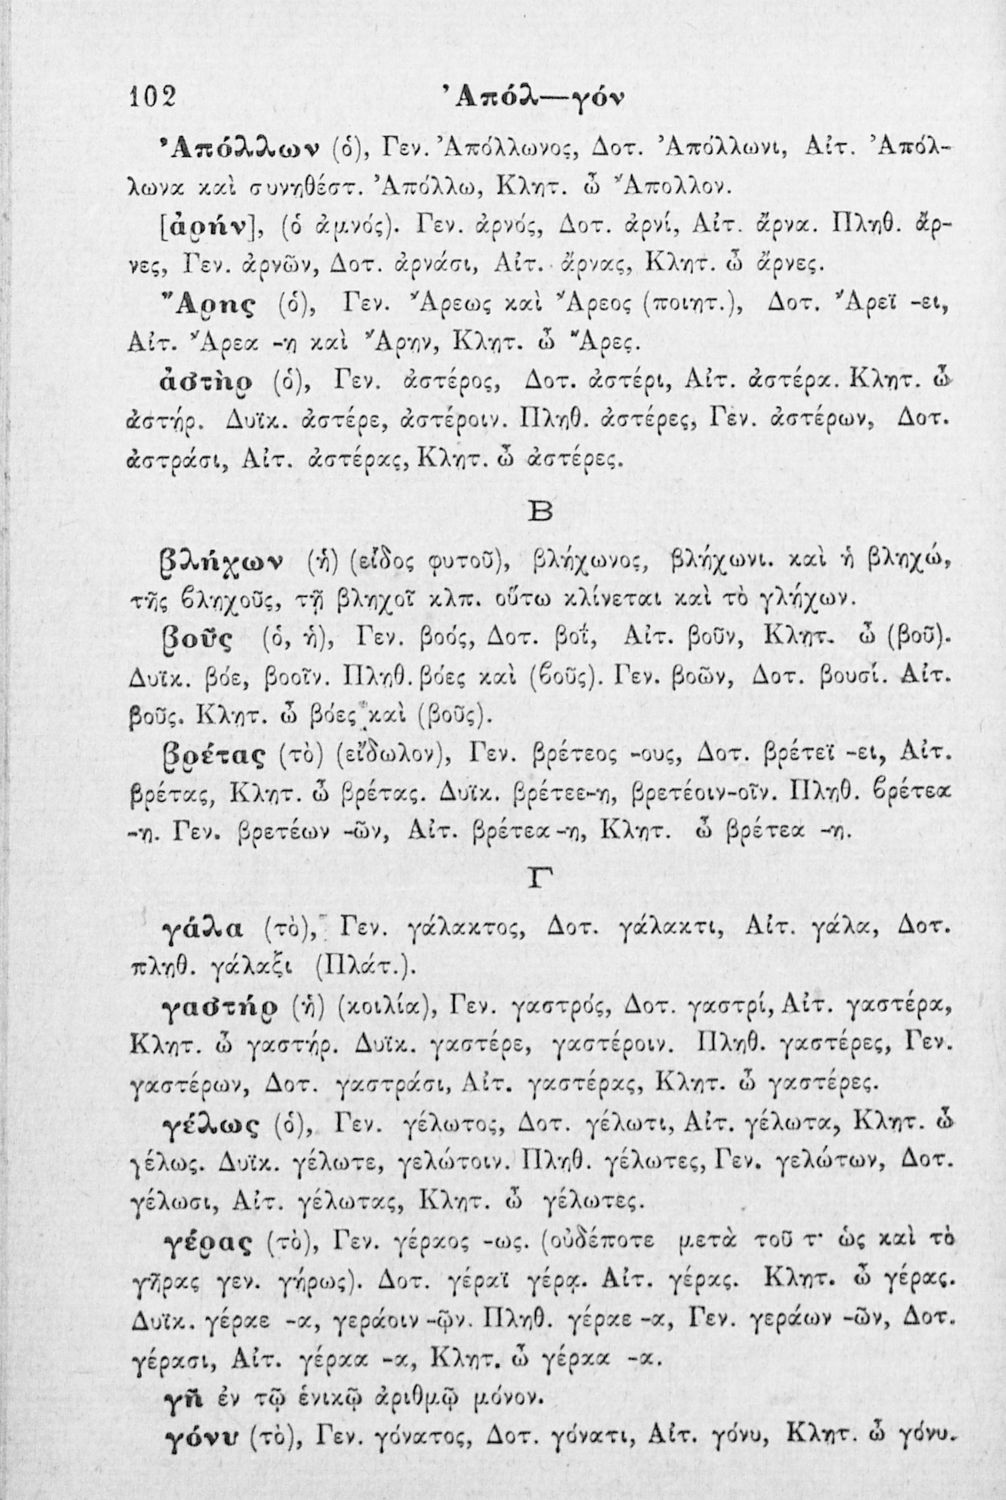 102 Ἀπόλ—γόν
Ἀπόλλων (ὁ), Γεν. Ἀπόλλωνος, Δοτ. Ἀπόλλωνι, Αἰτ. Ἀπόλ-
λωνα καὶ συνηθέστ. Ἀπόλλω, Κλητ. ὦ Ἄπολλον.
[ἀρήν], (ὁ ἀμνός). Γεν. ἀρνός, Δοτ. ἀρνί, Αἰτ. ἄρνα. Πληθ. ἄρ-
νες, Γεν. ἀρνῶν, Δοτ. ἀρνάσι, Αἰτ. ἄρνας, Κλητ. ὦ ἄρνες.
Ἄρης (ὁ), Γεν. Ἄρεως καὶ Ἄρεος (ποιητ.), Δοτ. Ἄρεϊ -ει,
Αἰτ. Ἄρεα -η καὶ Ἄρην, Κλητ. ὦ Ἄρες.
ἀστὴρ (ὁ), Γεν. ἀστέρος, Δοτ. ἀστέρι, Αἰτ. ἀστέρα. Κλητ. ὦ
ἀστήρ. Δυϊκ. ἀστέρε, ἀστέροιν. Πληθ. ἀστέρες, Γεν. ἀστέρων, Δοτ.
ἀστράσι, Αἰτ. ἀστέρας, Κλητ. ὦ ἀστέρες.
Β
βλήχων (ἡ) (εἶδος φυτοῦ), βλήχωνος, βλήχωνι. καὶ ἡ βληχώ,
τῆς ϐληχοῦς, τῇ βληχοῖ κλπ. οὕτω κλίνεται καὶ τὸ γλήχων.
βοῦς (ὁ, ἡ), Γεν. βοός, Δοτ. βοΐ, Αἰτ. βοῦν, Κλητ. ὦ (βοῦ).
Δυϊκ. βόε, βοοῖν. Πληθ. βόες καὶ (ϐοῦς). Γεν. βοῶν, Δοτ. βουσί. Αἰτ.
βοῦς. Κλητ. ὦ βόες καὶ (βοῦς).
βρέτας (τὸ) (εἴδωλον), Γεν. βρέτεος -ους, Δοτ. βρέτεϊ -ει, Αἰτ.
βρέτας, Κλητ. ὦ βρέτας. Δυϊκ. βρέτεε-η, βρετέοιν-οῖν. Πληθ. ϐρέτεα
-η. Γεν. βρετέων -ῶν, Αἰτ. βρέτεα -η, Κλητ. ὦ βρέτεα -η.
Γ
γάλα (τὸ), Γεν. γάλακτος, Δοτ. γάλακτι, Αἰτ. γάλα, Δοτ.
πληθ. γάλαξι (Πλάτ.).
γαστήρ (ἡ) (κοιλία), Γεν. γαστρός, Δοτ. γαστρί, Αἰτ. γαστέρα,
Κλητ. ὦ γαστήρ. Δυϊκ. γαστέρε, γαστέροιν. Πληθ. γαστέρες, Γεν.
γαστέρων, Δοτ. γαστράσι, Αἰτ. γαστέρας, Κλητ. ὦ γαστέρες.
γέλως (ὁ), Γεν. γέλωτος, Δοτ. γέλωτι, Αἰτ. γέλωτα, Κλητ. ὦ
γέλως. Δυϊκ. γέλωτε, γελώτοιν. Πληθ. γέλωτες, Γεν. γελώτων, Δοτ.
γέλωσι, Αἰτ. γέλωτας, Κλητ. ὦ γέλωτες.
γέρας (τὸ), Γεν. γέραος -ως. (οὐδέποτε μετὰ τοῦ τ· ὡς καὶ τὸ
γῆρας γεν. γήρως). Δοτ. γέραϊ γέρᾳ. Αἰτ. γέρας. Κλητ. ὦ γέρας.
Δυϊκ. γέραε -α, γεράοιν -ῷν. Πληθ. γέραε -α, Γεν. γεράων -ῶν, Δοτ.
γέρασι, Αἰτ. γέραα -α, Κλητ. ὦ γέραα -α.
γῆ ἐν τῷ ἑνικῷ ἀριθμῷ μόνον.
γόνυ (τὸ), Γεν. γόνατος, Δοτ. γόνατι, Αἰτ. γόνυ, Κλητ. ὦ γόνυ.